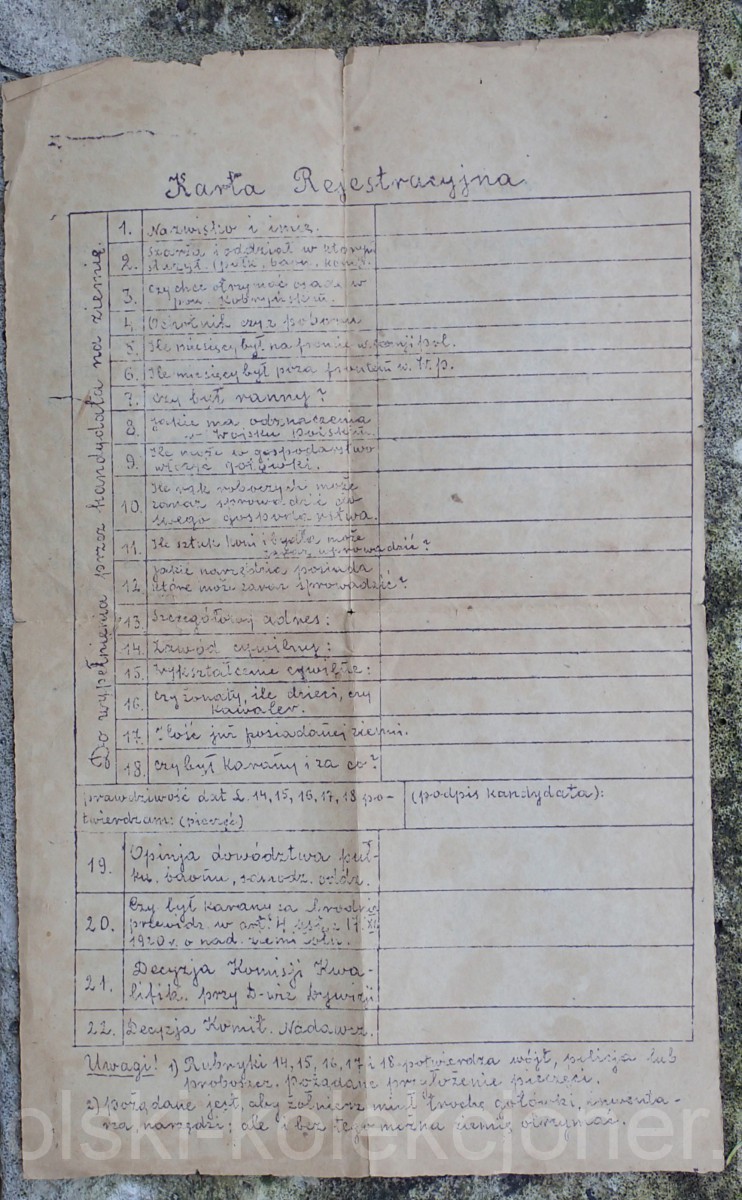 Karta Rejestracyjna
Do wypełnienia przez kandydata na ziemię.
1. Nazwisko i imię.
2. Szarża i oddział w którym
służył (pułk, baon, komp.
3. Czy chce otrzymać osadę w
pow. Kobryńskim.
4. Ochotnik czy z poboru
5. Ile miesięcy był na froncie pol.
6. Ile miesięcy był poza frontem w. W.p.
7. Czy był ranny?
8. Jakie ma odznaczenia
w Wojsku Polskim.
9. Ile może w gospodarstwo
gotówki.
10. Ile rąk roboczych może
zaraz sprowadzić do
swego gospodarstwa.
11. Ile sztuk koni i bydła może
zaraz sprowadzić?
12. Jakie narzędzia posiada
które może zaraz sprowadzić?
13. Szczegółowy adres:
14. Zawód cywilny:
15. Wykształcenie cywilne:
16. Czy żonaty, ile dzieci, czy
kawaler.
17. Ilość już posiadanej ziemi.
18. Czy był karany i za co?
prawdziwość dat L. 14, 15, 16, 17, 18 po-
twierdzam: (pieczęć)
(podpis kandydata):
19. Opinja dowództwa puł-
ku, baonu, samodz. oddz.
20. Czy był karany za zbrodnie
przewidz. w art. 4 ust. z 17 XII
1920 r. o nad. ziemi żołn.
21. Decyzja Komisji Kwa-
lifik. przy D-wie Dywizji
22. Decyzja Komit. Nadawcz.
Uwagi! 1) Rubryki 14, 15, 16, 17 i 18 potwierdza wójt, policja lub
proboszcz. pożądane przyłożenie pieczęci.
2) pożądane jest, aby żołnierz miał trochę gotówki, inwenta-
rza, narzędzi; ale i bez tego można ziemię otrzymać.
olski-kolekcjoner.